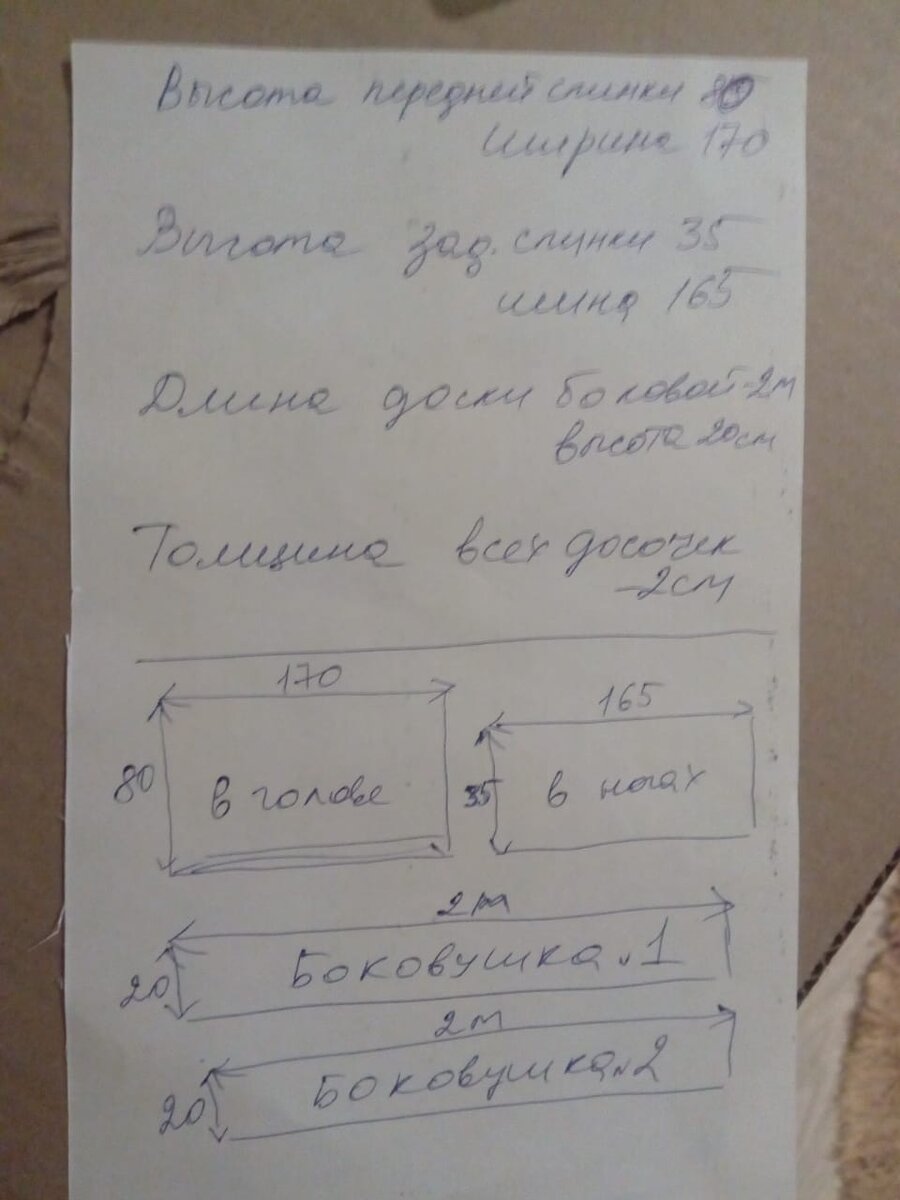 Высота передней спинки 80
Ширина 170
Высота зад. спинки 35
шина 165
Длина доски боковой-2м
высота 20см
Толщина всех досочек
-2см
170
80
в голове
165
35
в ногах
2м
20
Боковушка №1
2м
20
Боковушка №2